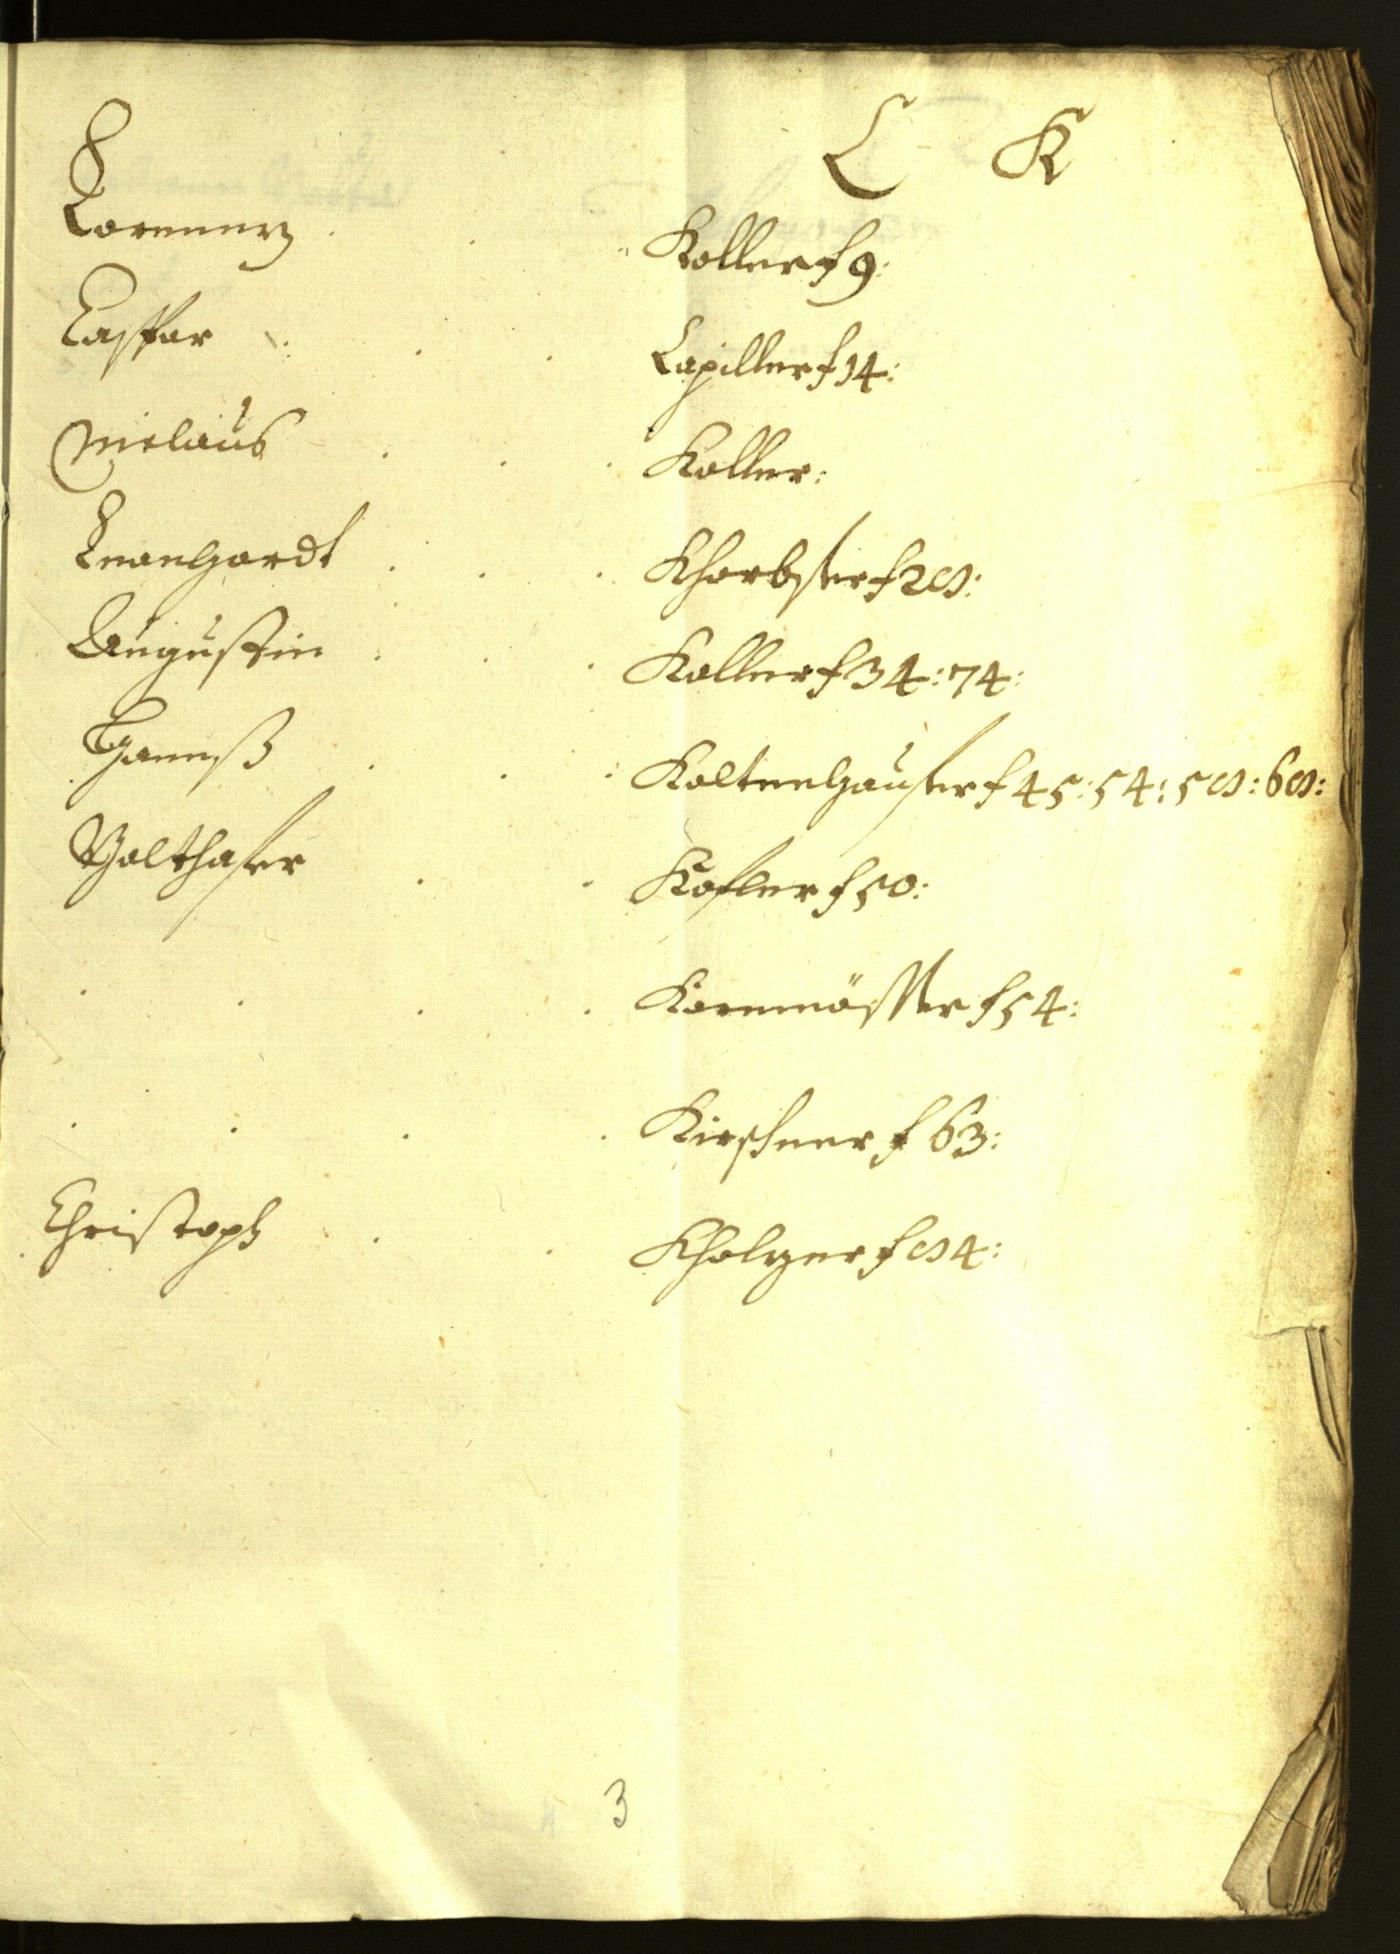 C K
Lorennz . . . Koller f 9:
Caspar . . . Capiller f 14:
Niclaus . . . Koller:
Leonhardt . . . Khorbster f 28:
Augustin . . . Koller f 34: 74:
Hannß . . . Koltenhauser f 45: 54: 58: 68:
Balthaser . . Kofler f 50:
. . . . Kornmösser f 54:
. . . . Kirschner f 63:
Christoph . . Kholzer f 84:
3